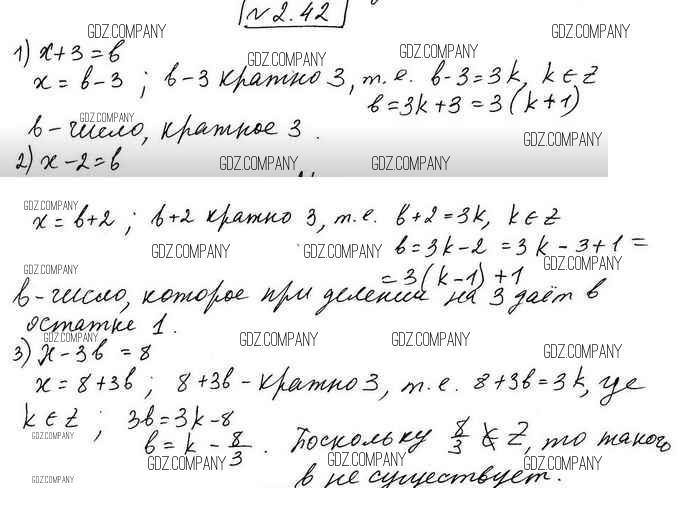 №2.42
GDZ.COMPANY GDZ.COMPANY
1) x+3=b GDZ.COMPANY GDZ.COMPANY
x = b-3 ; b-3 кратно 3, т.е. b-3=3k, k∈Z
b=3k+3=3(k+1)
GDZ.COMPANY
b-число, кратное 3. GDZ.COMPANY
2) x-2=b GDZ.COMPANY GDZ.COMPANY
GDZ.COMPANY
x = b+2 ; b+2 кратно 3, т.е. b+2=3k, k∈Z
GDZ.COMPANY GDZ.COMPANY b=3k-2 =3k-3+1=
GDZ.COMPANY =3(k-1)+1 GDZ.COMPANY
b-число, которое при делении на 3 даёт в
остатке 1.
GDZ.COMPANY GDZ.COMPANY GDZ.COMPANY
3) x-3b =8 GDZ.COMPANY
x=8+3b ; 8+3b-кратно 3, т.е. 8+3b=3k, где
k∈Z ; 3b=3k-8
GDZ.COMPANY b=k-8/3. Поскольку 8/3 ∉ Z, то такого
GDZ.COMPANY GDZ.COMPANY GDZ.COMPANY
GDZ.COMPANY b не существует.